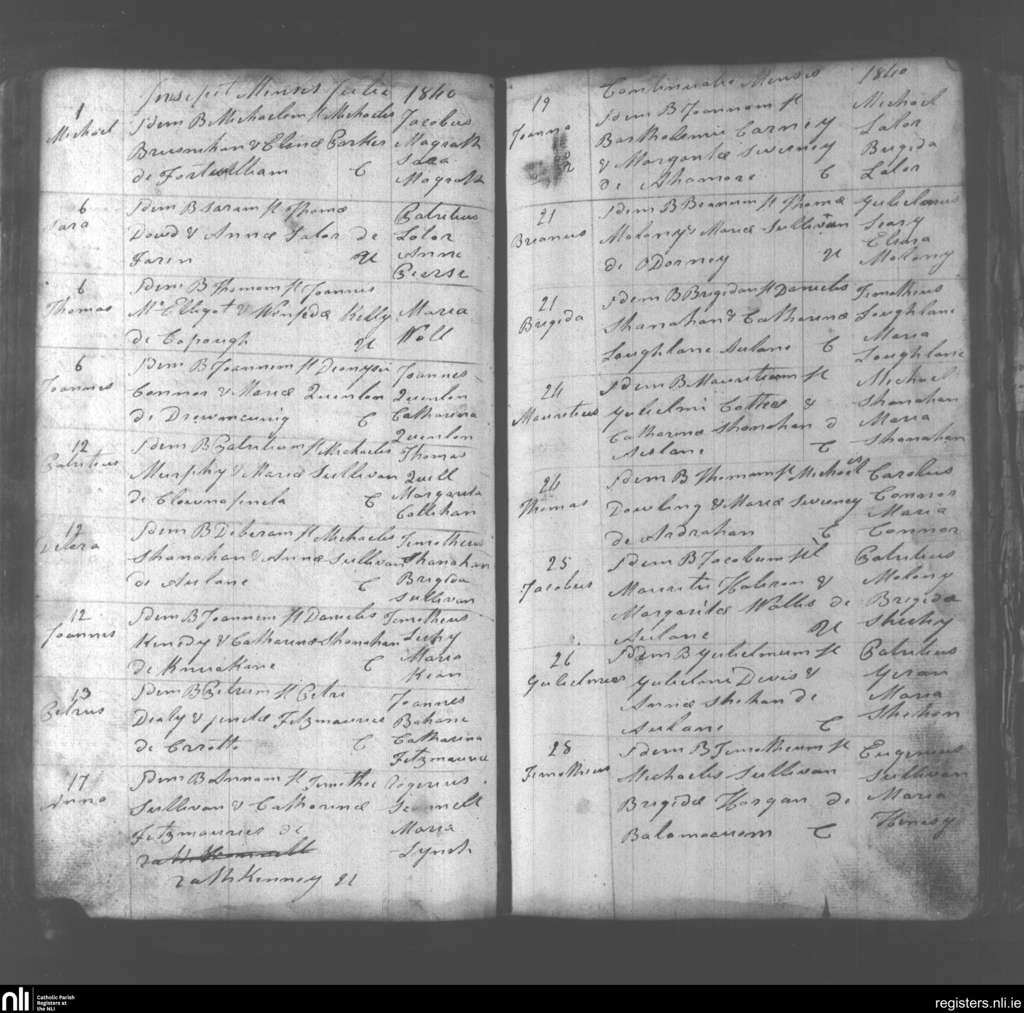 Insipit Mensis Julii 1840
1
Michael
Idem B Michaelem fl Michaelis
Bresnihan & Elinæ Parker
de Fortwilliam C
Jacobus
Magrath
Sara
Magrath
6
Sara
Idem B Saram fl Thomæ
Dowd & Annæ Lalor de
U
Patritius
Lalor
Anne
Pierse
6
Thomas
Idem B Thomam fl Joannis
McElligot & Winifidæ Kelly
de U
Maria
6
Joannes
Idem B Joannem fl Dionysii
Connor & Mariæ Quenlon
de C
Joannes
Quenlon
Catharina
Quenlon
12
Patritius
Idem B Patritium fl Michaelis
Murphy & Mariæ Sullivan
de C
Thomas
Quill
Margarita
Callihan
12
Idem B Deberam fl Michaelis
Shanahan & Annæ Sullivan
de Aulane C
Timotheus
Shanahan
Brigida
Sullivan
12
Joannes
Idem B Joannem fl Danielis
Kenedy & Catharinæ Shanahan
de C
Timotheus
Maria
Kean
13
Petrus
Idem B Petrum fl Petri
Dealy & Fitzmaurice
de Crotto C
Joannes
Bahane
Catharina
Fitzmaurice
17
Anna
Idem B Annam fl Timothei
Sullivan & Catharinæ
Fitzmaurice de
rathKenney U
Rogerius
Maria
Lynch
Continuatio Mensis 1840
19
Joanna
Idem B Joannam fl
Bartholomei Carney
& Margaritæ Sweeney
de C
Michael
Lalor
Brigida
Lalor
21
Breanus
Idem B Breanum fl Thomæ
Molony & Mariæ Sullivan
de ODorney U
Gulielmus
Leary
Elina
Molony
21
Brigida
Idem B Brigidam fl Danielis
Shanahan & Catharinæ
Loughlane Aulane C
Timotheus
Loughlane
Maria
Loughlane
24
Mauritius
Idem B Mauritium fl
Gulielmi &
Catharinæ Shanahan d
Aulane C
Michael
Shanahan
Maria
Shanahan
26
Thomas
Idem B Thomam fl Michaelis
Dowling & Mariæ Sweeney
de Ardrahan C
Carolus
Connor
Maria
Connor
25
Jacobus
Idem B Jacobum fl
Mauritii &
Margaritæ Wallis de
Aulane U
Patritius
Molony
Brigida
Sheehy
26
Gulielmus
Idem B Gulielmum fl
Gulielmi Davis &
Annæ Shehan de
Aulane C
Patritius
Maria
Shehan
28
Timotheus
Idem B Timotheum fl
Michaelis Sullivan
Brigidæ Horgan de
C
Eugenius
Sullivan
Maria
nli Catholic Parish
Registers at
the NLI
registers.nli.ie